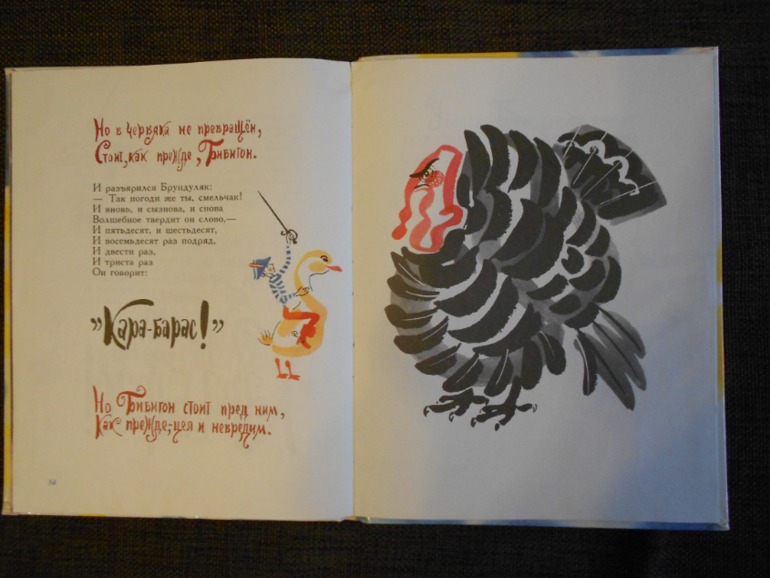 Но в червяка не превращён,
Стоит, как прежде, Бибигон.
И разъярился Брундуляк:
— Так погоди же ты, смельчак!
И вновь, и сызнова, и снова
Волшебное твердит он слово,—
И пятьдесят, и шестьдесят,
И восемьдесят раз подряд,
И двести раз,
И триста раз
Он говорит:
„Кара-барас!”
Но Бибигон стоит пред ним,
Как прежде,-цел и невредим.